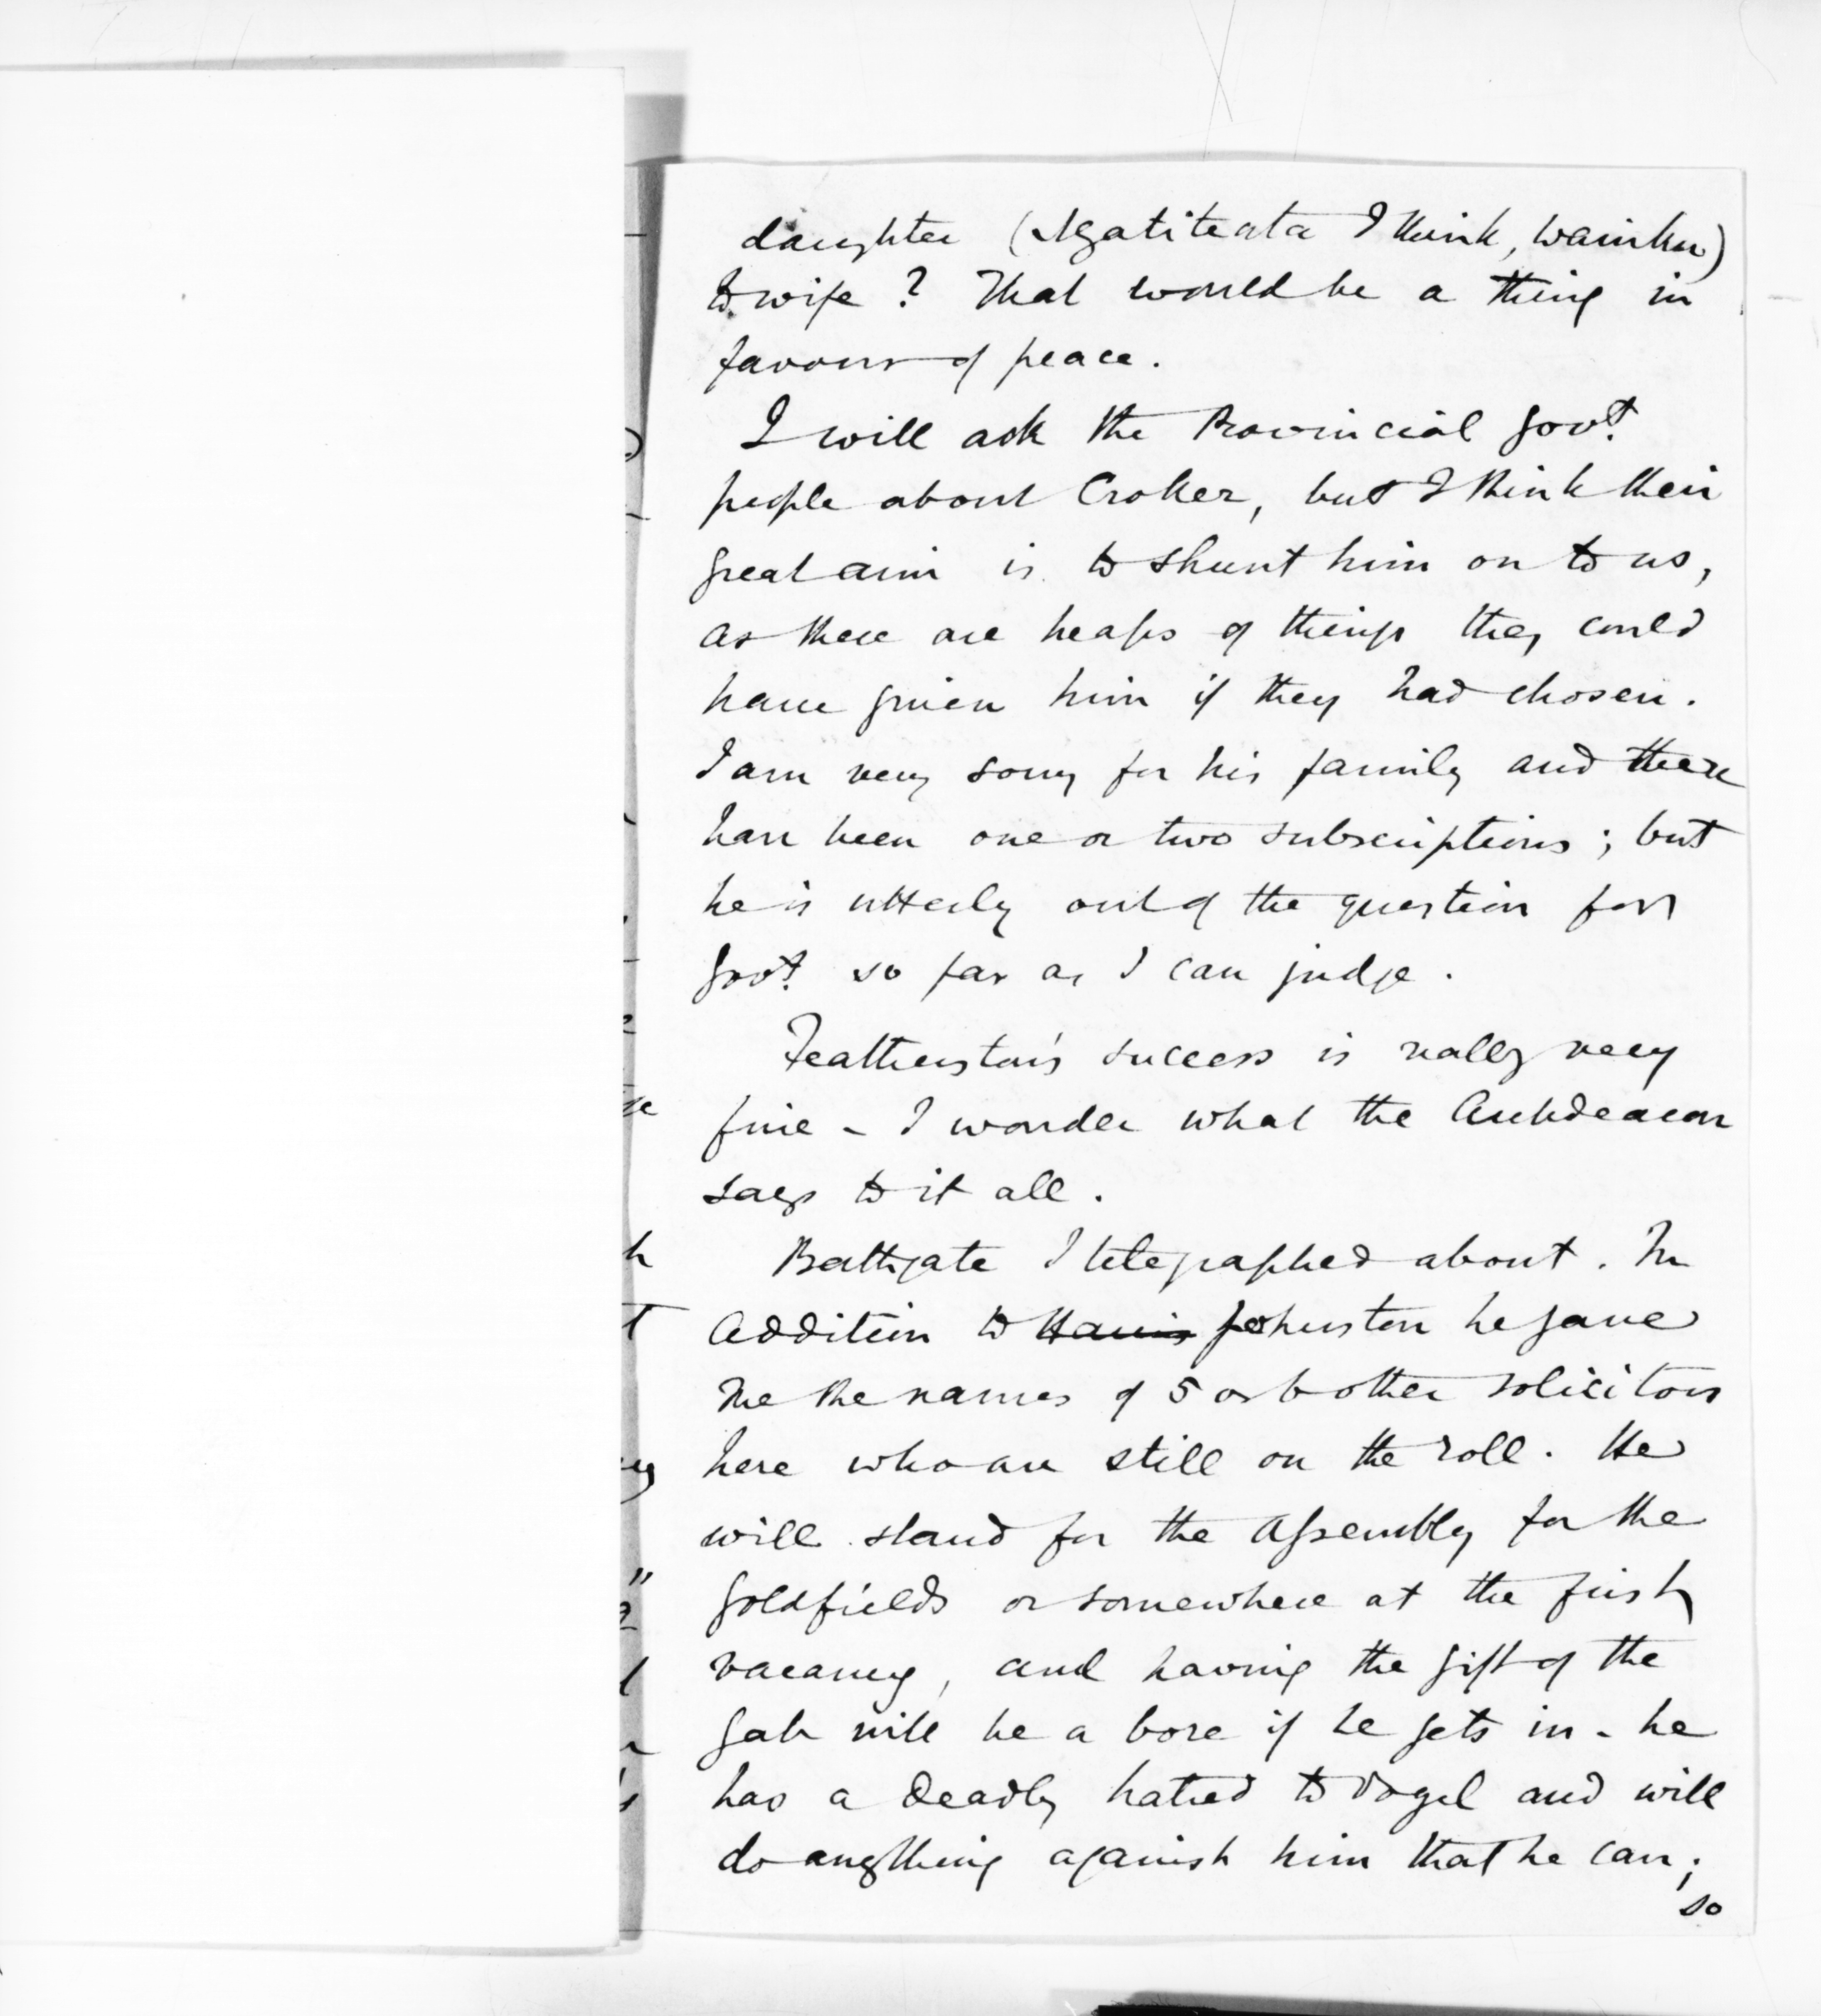 daughter (Ngatiteata I think, Waiuku)
to wife? That would be a thing in
favour of peace.
I will ask the Provincial Govt.
people about Croker, but I think their
great aim is to shunt him on to us,
as there are heaps of things they could
have given him if they had chosen.
I am very sorry for his family and there
have been one or two subscriptions; but
he is utterly out of the question for
Govt. so far as I can judge.
Featherston's success is really very
fine - I wonder what the Archdeacon
says to it all.
Bathgate I telegraphed about. In
addition to Harris Johnston he gave
me the names of 5 or 6 other solicitors
here who are still on the roll. He
will stand for the Assembly for the
goldfields or somewhere at the first
vacancy, and having the gift of the
gab will be a bore if he gets in - he
has a deadly hatred to Vogel and will
do anything against him that he can;
so